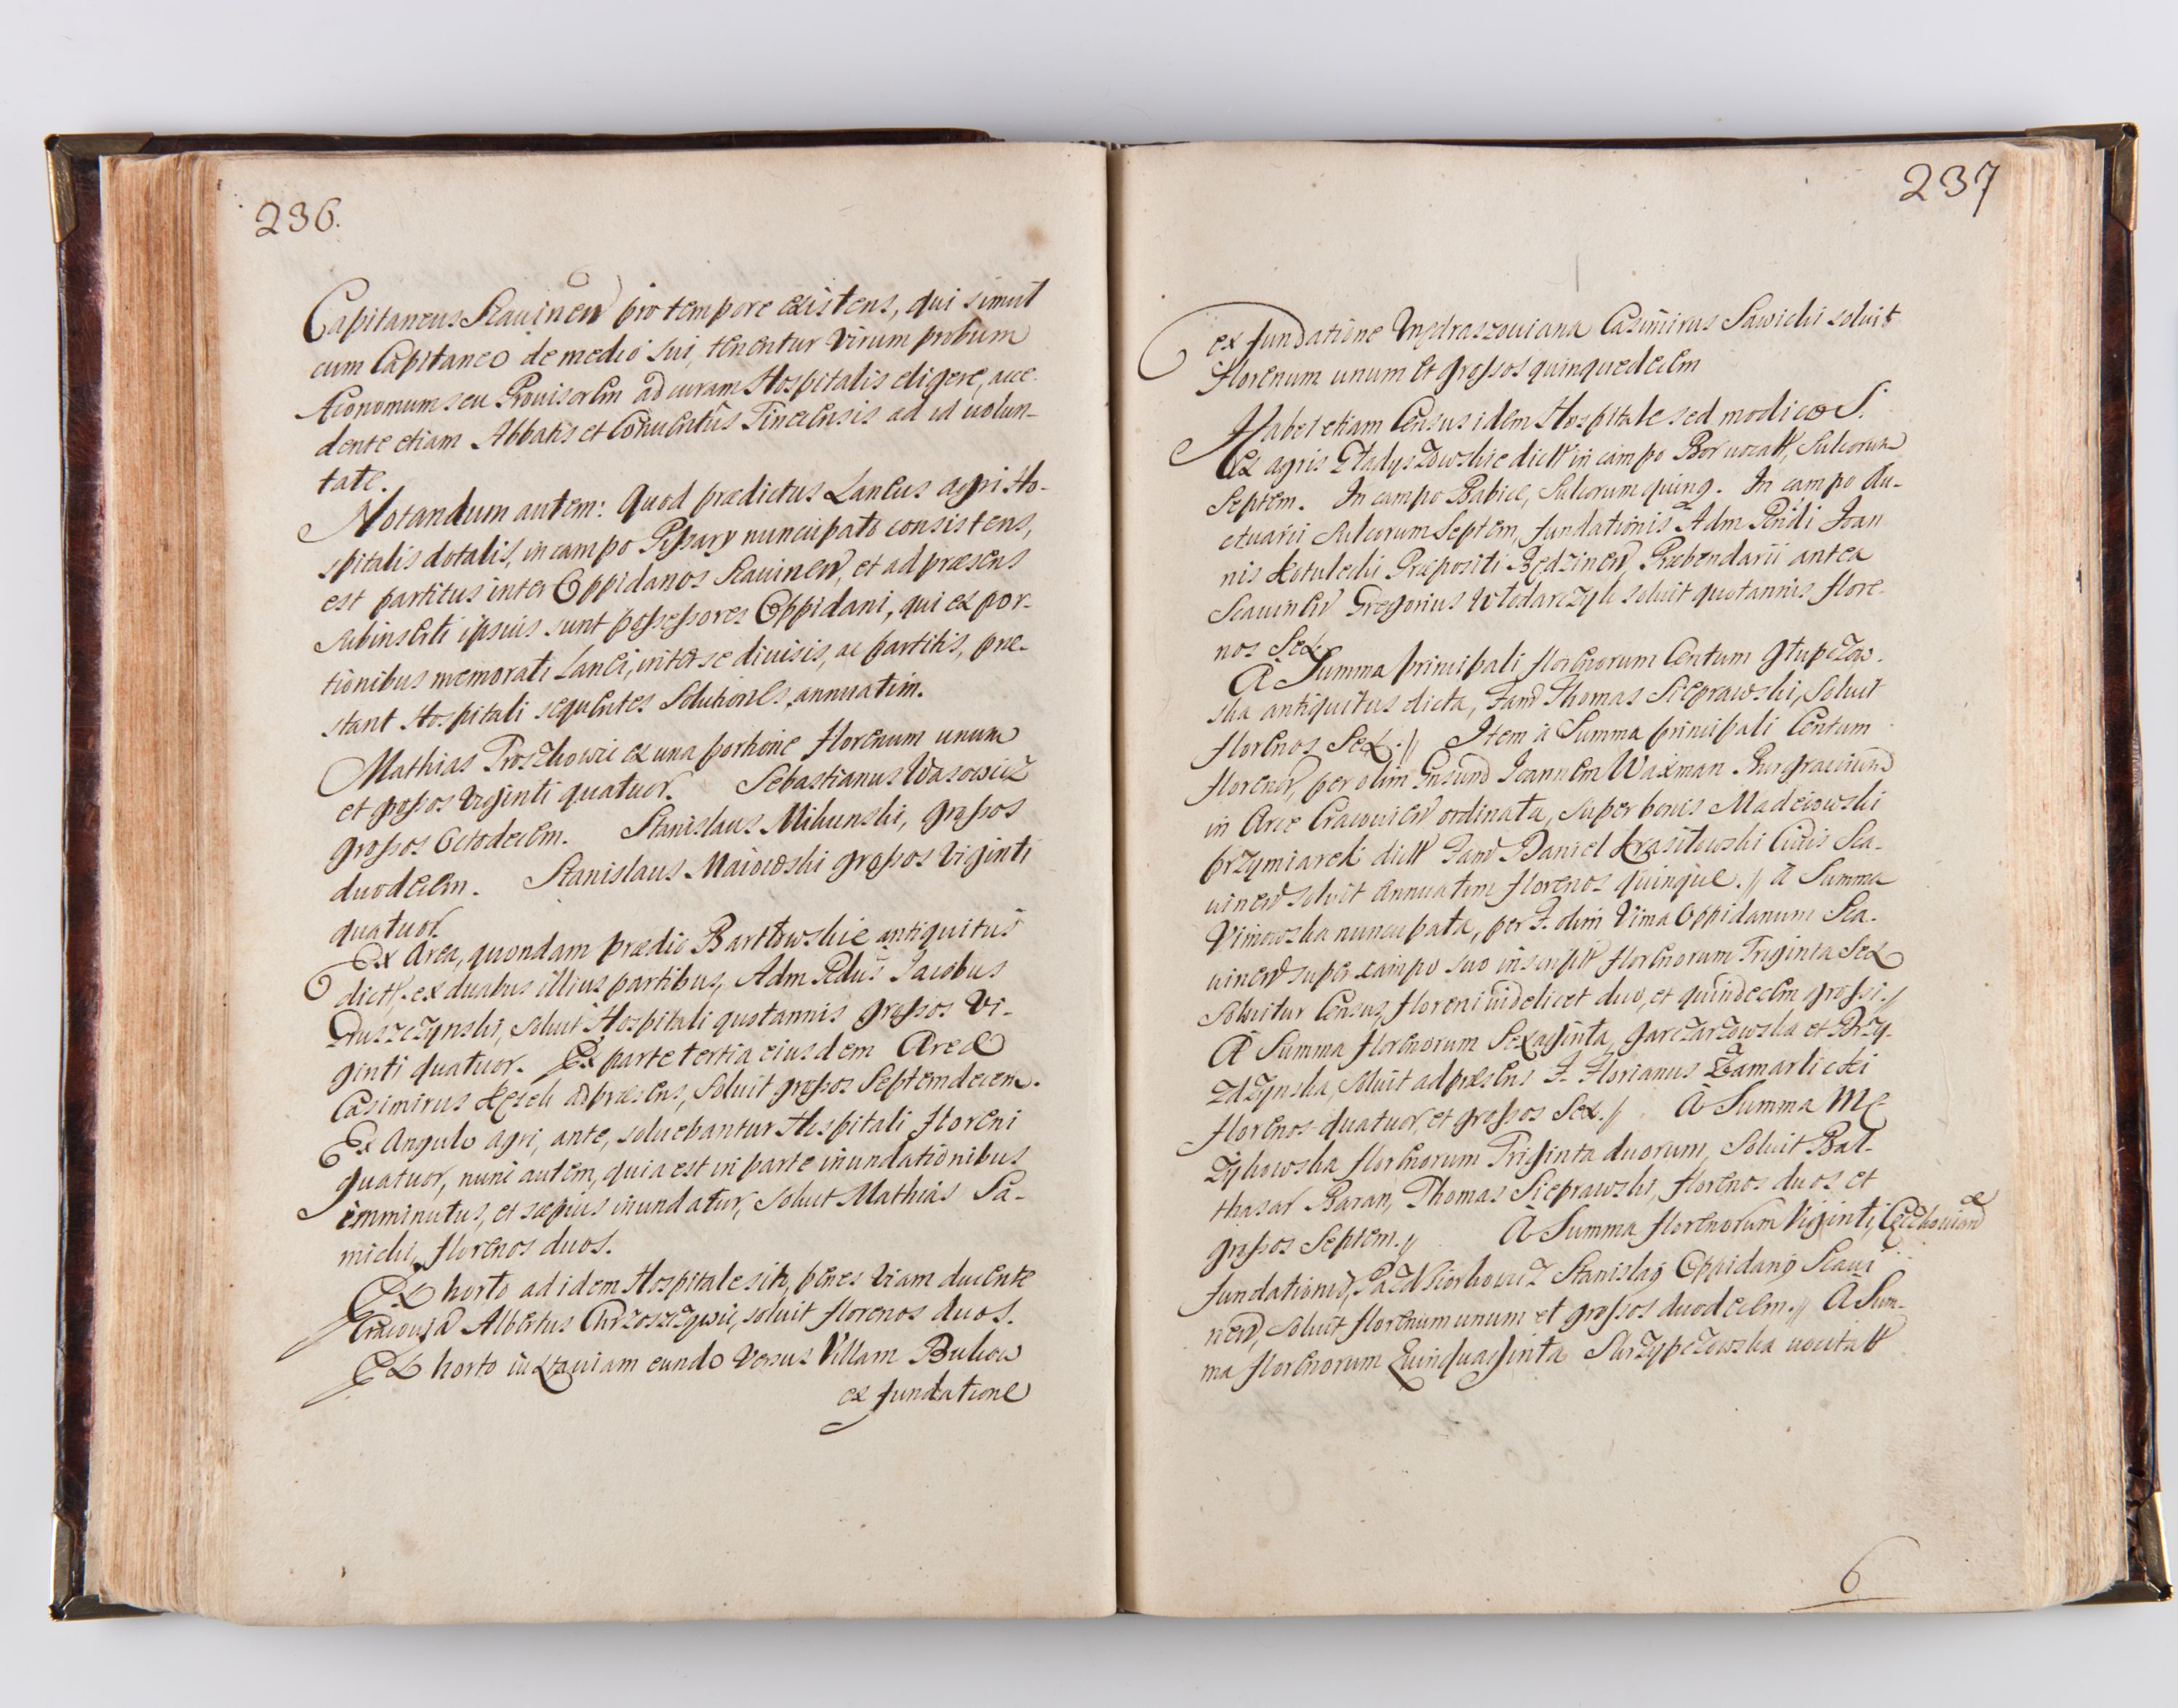 236.
Capitaneus Scavinen pro tempore existens, qui simul
cum Capitaneo de medio sui, tenentur Virum probum
Æconomum seu Provisorem ad curam Hospitalis eligere, acce-
dente etiam Abbatis et Conventûs Tinecensis ad id volun-
tate.
Notandum autem: Quod prædictus Laneus agri Ho-
spitalis dotalis, in campo Pisary nuncupato consistens,
est partitus inter Oppidanos Scavinen, et ad præsens
subinserti ipsius sunt possessores Oppidani, qui ex por-
tionibus memorati Lanei, inter se divisis, ac partitis, præ-
stant Hospitali sequentes Solutiones annuatim.
Mathias Proszkowic ex una portione florenum unum
et grossos Viginti quatuor. Sebastianus Wasowicz
grossos Octodecem. Stanislaus Mikunski, grossos
duodecem. Stanislaus Maiowski grossos Viginti
quatuor.
Ex Area, quondam prædio Bartłowskie antiquitus
dict. ex duabus illius partibus, Adm Rdus Jacobus
Duszczynski, solvit Hospitali quotannis grossos Vi-
ginti quatuor. Ex parte tertia eiusdem Areæ
Casimirus ad præsens, solvit grossos Septemdecem.
Ex Angulo agri, ante, solvebantur Hospitali floreni
quatuor, nunc autem, quia est in parte inundationibus
imminutus, et sæpius inundatur, solvit Mathias Sa-
micki, florenos duos.
Ex horto ad idem Hospitale sito, penes Viam ducente
Cracoviã Albertus Chrzoszczowic, solvit florenos duos.
Ex horto iuxta viam eundo versus Villam Bukow
ex fundatione
237
ex fundatione Casimirus Sawicki solvit
florenum unum et grossos quinquedecem
Habet etiam Census idem Hospitale sed modicos.
Ex agris Gładyszowskie dict in campo vocatt, Sulcorum
Septem. In campo Babice, Sulcorum quinq. In campo Au-
ctuarii Sulcorum Septem, fundationis Adm Rndi Joan
nis Kotulecki Præpositi Będzinen, Præbendarii antea
Scavinen Gregorius Włodarczyk solvit quotannis flore-
nos Sex.
A Summa principali florenorum Centum Głupczow-
ska antiquitus dicta, Fam Thomas Sieprawski, solvit
florenos Sex.// Item à Summa principali Centum
floren, per olim Gnsum Joannem Waxman Burgravium
in Arce Cracovien ordinata, super bonis Madeiowski
przymiarek dict Fam Daniel Krasitowski Civis Sca-
vinen solvit annuatim florenos quinque.// à Summa
Vimowska nuncupata, per F. olim Vima Oppidanum Sca-
vinen super campo suo inscript florenorum Triginta Sex
Solvitur Census, floreni videlicet duo, et quindecem grossi.//
A Summa florenorum Sexaginta, Garczarzowska et Brzy-
zdzynska, solvit ad præsens F. Florianus Zamarlicki
florenos quatuor, et grossos Sex.// A Summa Mę
żykowska florenorum Triginta duorum, solvit Bal-
thasar Baran, Thomas Sieprawski, florenos duos et
grossos Septem.// A Summa florenorum Viginti, Czechovianæ
fundationis, Stanislaus Oppidanus Scavi
nen, solvit florenum unum et grossos duodecem.// A Sum-
ma florenorum Quinquaginta Skrzypczowska vocitatt
6